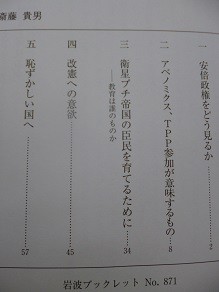 斎藤 貴男
一 安倍政権をどう見るか………2
二 アベノミクス、TPP参加が意味するもの……8
三 衛星プチ帝国の臣民を育てるために……34
――教育は誰のものか
四 改憲への意欲………45
五 恥ずかしい国へ………57
岩波ブックレット No. 871